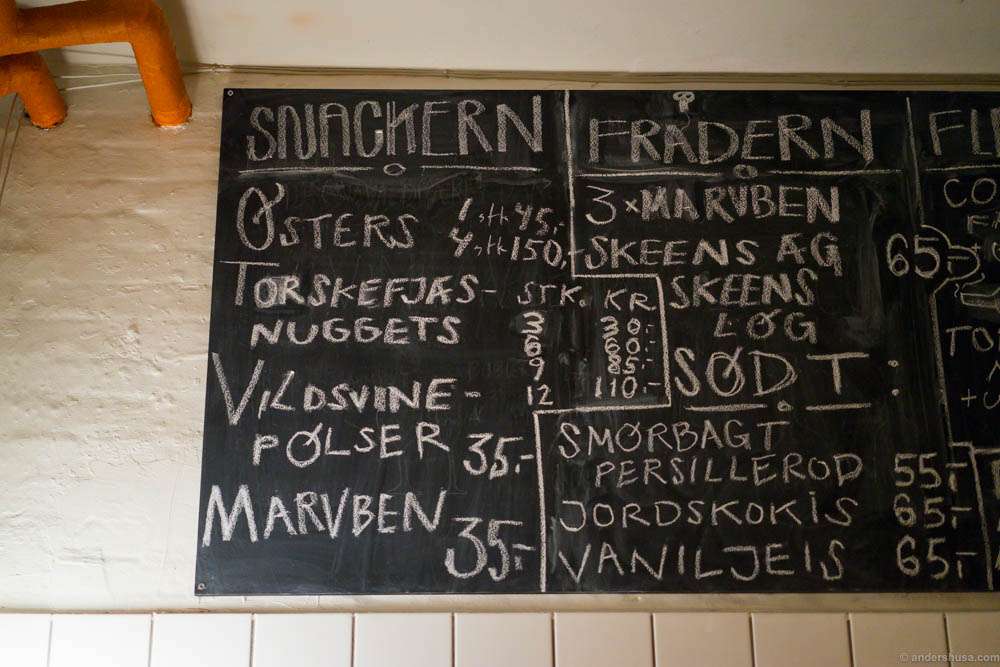 SNACKERN
ØSTERS 1 stk 45,-
4 stk 150,-
TORSKEFJÆS-
NUGGETS
STK. KR
3 30:-
6 60:-
9 85:-
12 110:-
VILDSVINE-
PØLSER 35:-
MARVBEN 35:-
FRÅDERN
3 x MARVBEN
SKEENS ÆG 65:-
SKEENS
LØG
SØDT:
SMØRBAGT
PERSILLEROD 55:-
JORDSKOKIS 65:-
VANILJEIS 65:-
FL
CO
+
TO
+
© andershusa.com